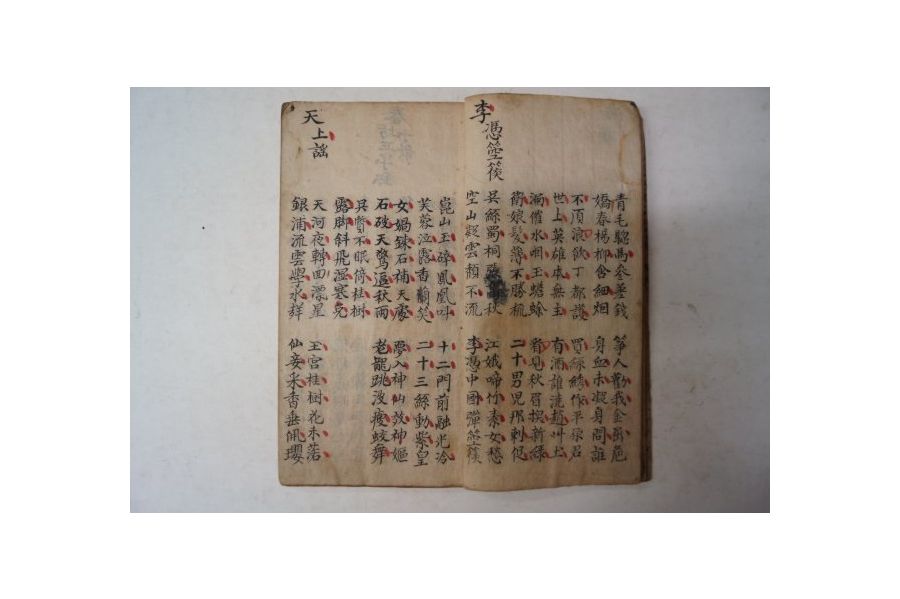 青毛驄馬參差錢 箏人勸我金屈卮
嬌春楊柳含細烟 身血未凝身問誰
不須浪飲丁都護 買絲繡作平原君
世上英雄本無主 有酒誰澆趙州土
漏催水咽玉蟾蜍 看見秋眉換新綠
衛娘髮薄不勝梳 二十男兒那刺促
李馮箜篌
吳絲蜀桐秋 江娥啼竹素女愁
空山凝雲頹不流 李馮中國彈箜篌
崑山玉碎鳳凰叫 十二門前融光冷
芙蓉泣露香蘭笑 二十三絲動紫皇
女媧鍊石補天處 夢入神仙教神嫗
石破天驚逗秋雨 老龍跳波瘦蛟舞
吳質不眠倚桂樹
露脚斜飛濕寒兔
天上謠
天河夜轉回漂星 玉宮桂樹花未落
銀浦流雲學水聲 仙妾采香垂佩瓔